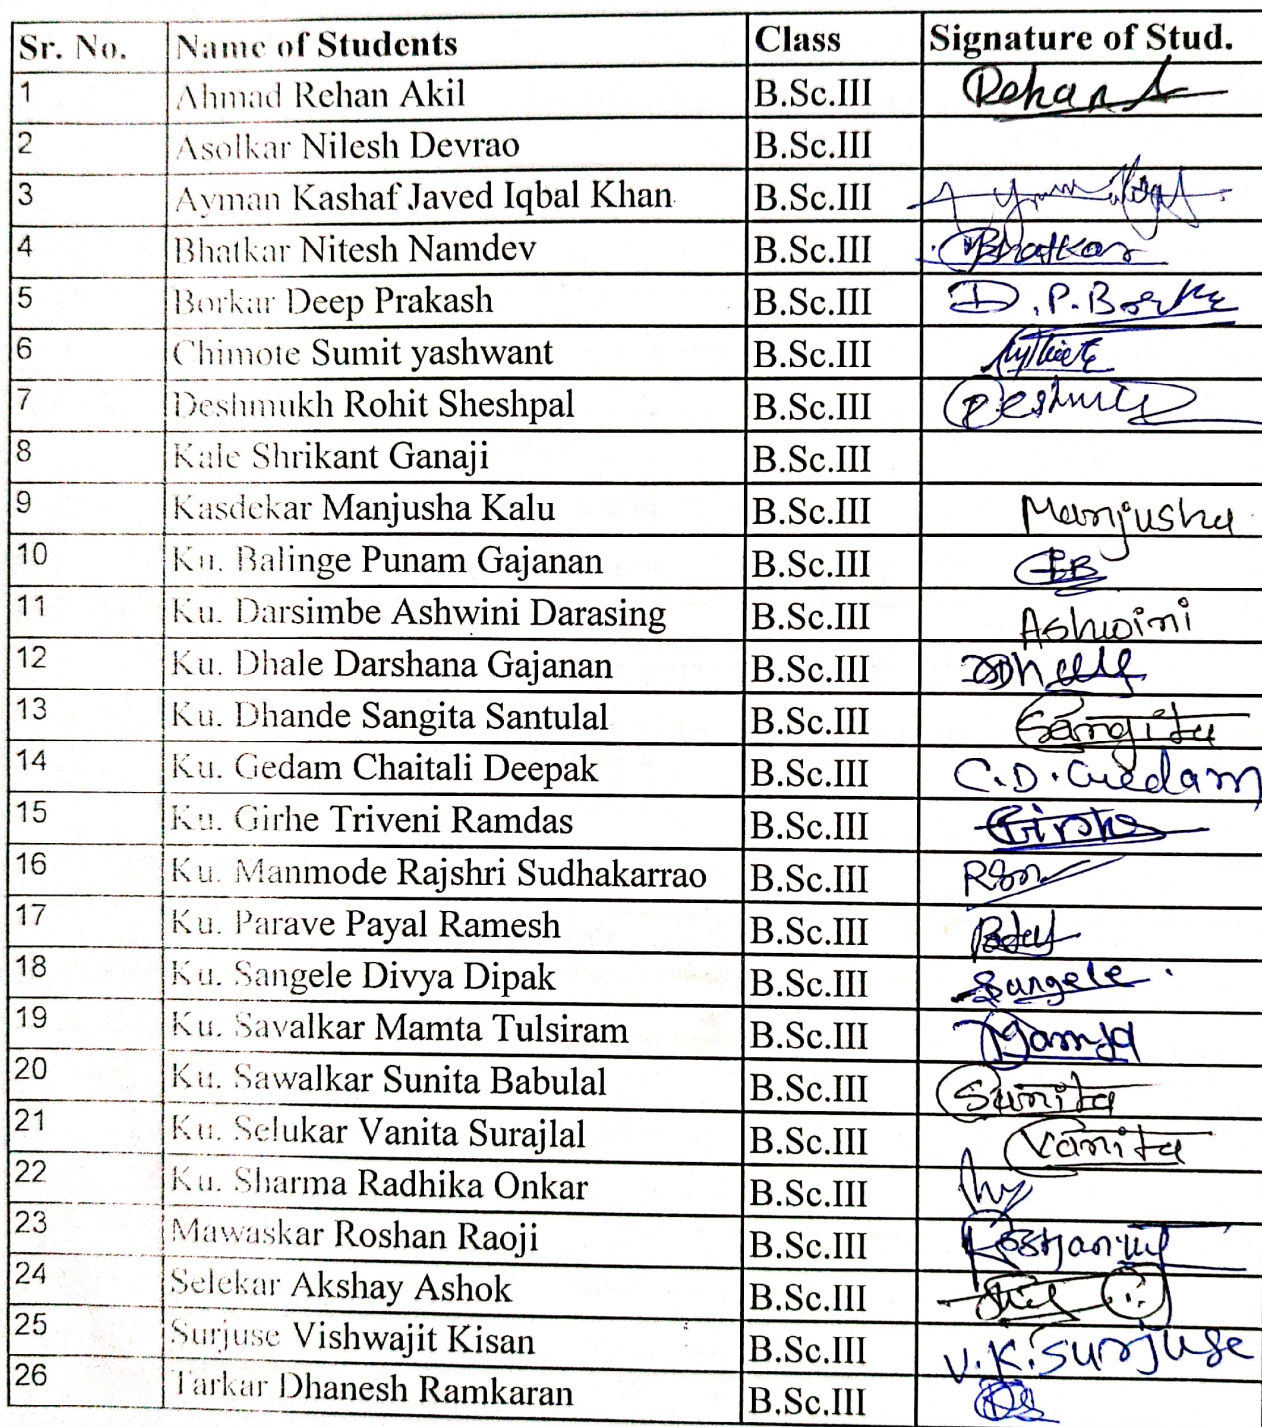 Sr. No. Name of Students Class Signature of Stud.
1 Ahmad Rehan Akil B.Sc.III Rehan A
2 Asolkar Nilesh Devrao B.Sc.III
3 Ayman Kashaf Javed Iqbal Khan B.Sc.III
4 Bhatkar Nitesh Namdev B.Sc.III Bhatkar
5 Borkar Deep Prakash B.Sc.III D.P.Borkar
6 Chimote Sumit yashwant B.Sc.III
7 Deshmukh Rohit Sheshpal B.Sc.III
8 Kale Shrikant Ganaji B.Sc.III
9 Kasdekar Manjusha Kalu B.Sc.III Manjusha
10 Ku. Balinge Punam Gajanan B.Sc.III
11 Ku. Darsimbe Ashwini Darasing B.Sc.III Ashwini
12 Ku. Dhale Darshana Gajanan B.Sc.III
13 Ku. Dhande Sangita Santulal B.Sc.III Sangita
14 Ku. Gedam Chaitali Deepak B.Sc.III C.D.Gedam
15 Ku. Girhe Triveni Ramdas B.Sc.III Girhe
16 Ku. Manmode Rajshri Sudhakarrao B.Sc.III RSM
17 Ku. Parave Payal Ramesh B.Sc.III
18 Ku. Sangele Divya Dipak B.Sc.III Sangele
19 Ku. Savalkar Mamta Tulsiram B.Sc.III Mamta
20 Ku. Sawalkar Sunita Babulal B.Sc.III Sunita
21 Ku. Selukar Vanita Surajlal B.Sc.III Vanita
22 Ku. Sharma Radhika Onkar B.Sc.III
23 Mawaskar Roshan Raoji B.Sc.III
24 Selekar Akshay Ashok B.Sc.III
25 Surjuse Vishwajit Kisan B.Sc.III V.K.Surjuse
26 Tarkar Dhanesh Ramkaran B.Sc.III